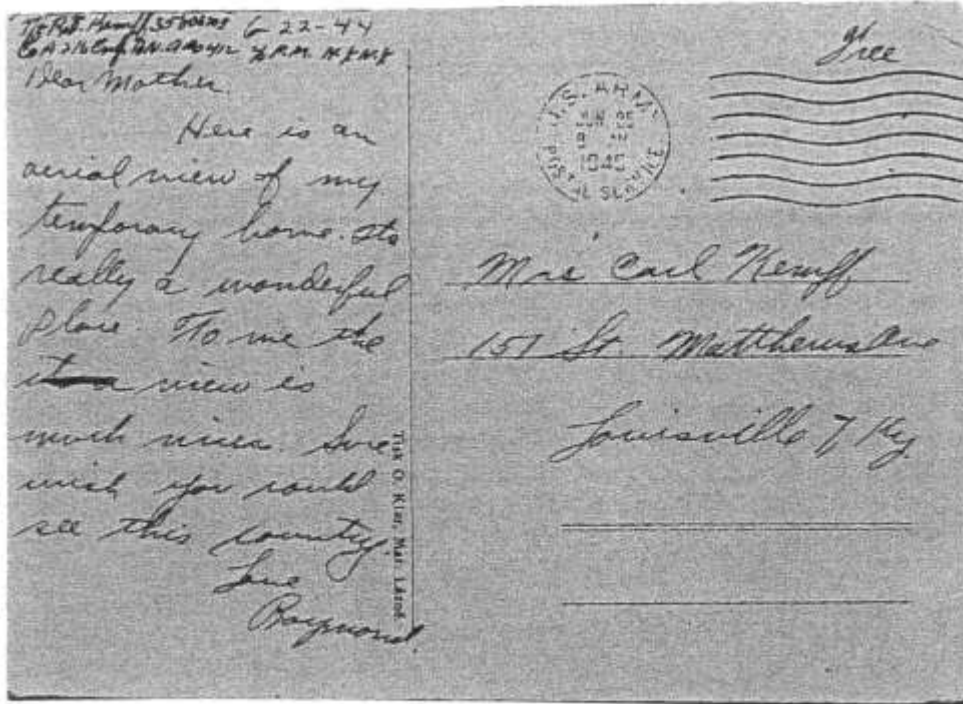 T/5 R.J. Kempff 6-22-44
Co A 216 Engr. BN. APO 412 % P.M. N.Y. N.Y.
Dear Mother.
Here is an
aerial view of my
temporary home. Its
really a wonderful
place. To me the
view is
much nicer. Sure
wish you could
see this country.
Love
Raymond.
Tisk O. Klar, Mar. Lázně
Free
U.S. ARMY
JUN 25
1945
POSTAL SERVICE
Mrs Carl Kempff
157 St. Matthews Ave
Louisville 7 Ky.